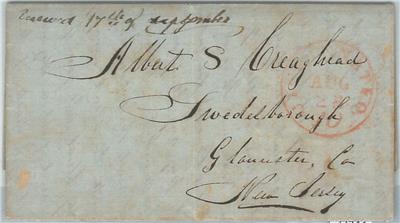 17th of september
Albert S Creaghead
Swedesborough
Gloucester, Co
New Jersey
AUG